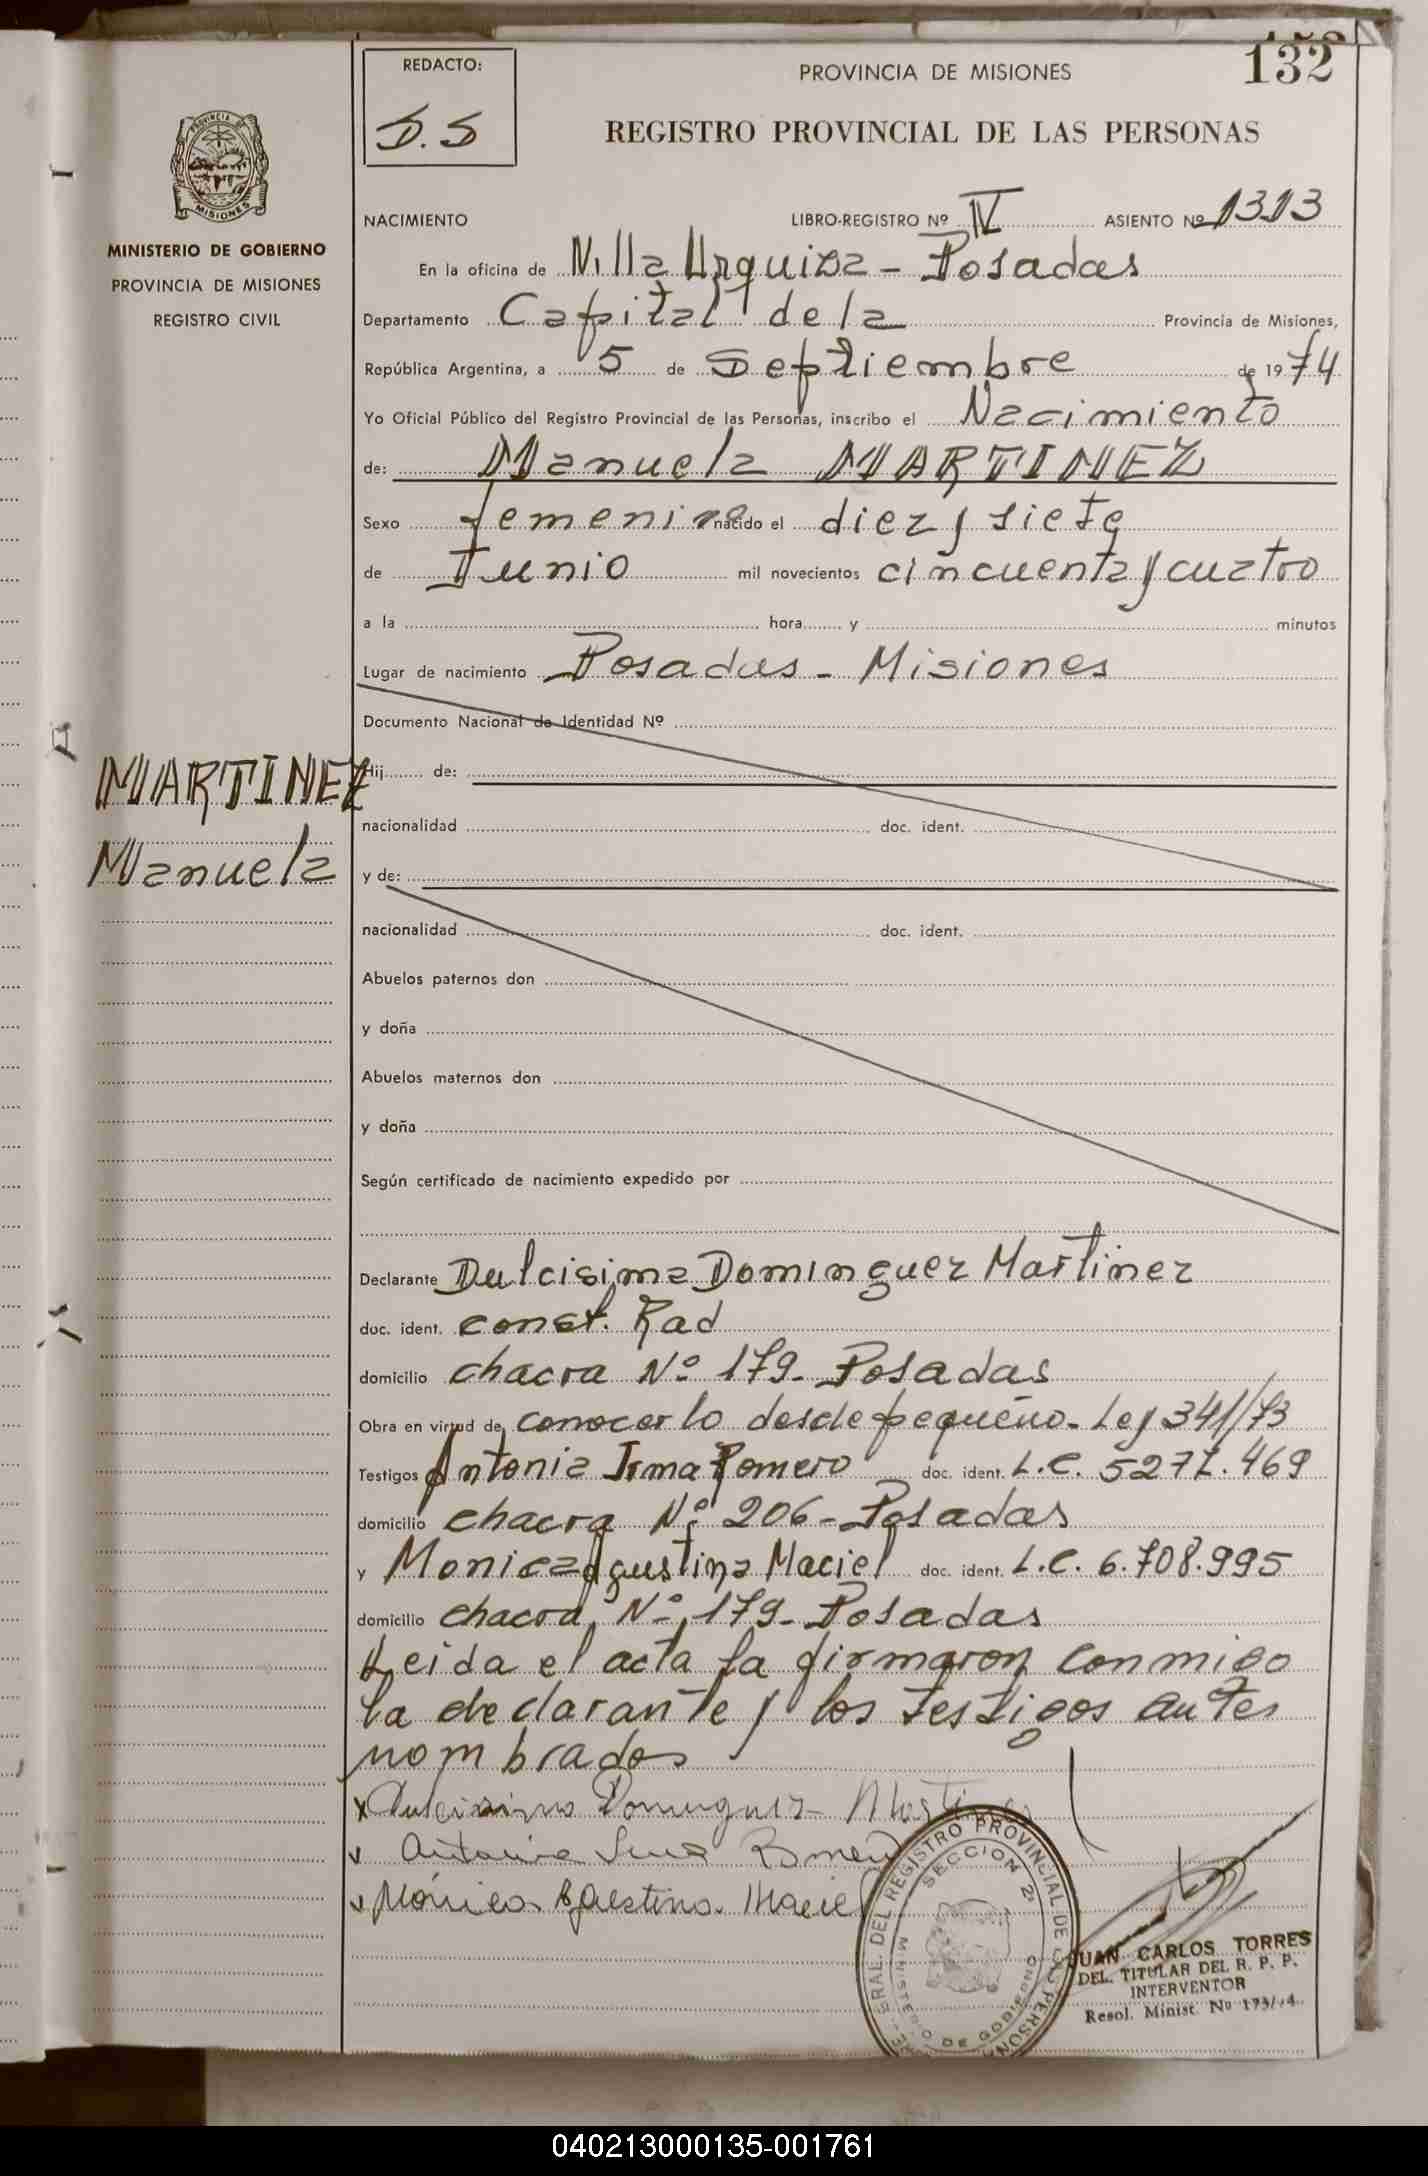 132
REDACTO:
D.S
PROVINCIA DE MISIONES
REGISTRO PROVINCIAL DE LAS PERSONAS
PROVINCIA DE
MISIONES
MINISTERIO DE GOBIERNO
PROVINCIA DE MISIONES
REGISTRO CIVIL
NACIMIENTO LIBRO-REGISTRO Nº IV ASIENTO Nº 1313
En la oficina de Villa Urquiza - Posadas
Departamento Capital de la Provincia de Misiones,
República Argentina, a 5 de Septiembre de 1974
Yo Oficial Público del Registro Provincial de las Personas, inscribo el Nacimiento
de: Manuela MARTINEZ
Sexo femenino nacido el diez y siete
de Junio mil novecientos cincuenta y cuatro
a la hora y minutos
Lugar de nacimiento Posadas - Misiones
Documento Nacional de Identidad Nº
MARTINEZ
Manuela
Hij de:
nacionalidad doc. ident.
y de:
nacionalidad doc. ident.
Abuelos paternos don
y doña
Abuelos maternos don
y doña
Según certificado de nacimiento expedido por
Declarante Dulcisima Dominguez Martinez
doc. ident. const. Rad
domicilio chacra Nº 179 - Posadas
Obra en virtud de conocerlo desde pequeño - Ley 341/73
Testigos Antonia Irma Romero doc. ident. L.C. 5277.469
domicilio chacra Nº 206 - Posadas
y Monica Agustina Maciel doc. ident. L.C. 6.708.995
domicilio chacra Nº 179 - Posadas
Leida el acta la firmaron conmigo
la declarante y los testigos antes
nombrados
x Dulcisima Dominguez Martinez
x Antonia Irma Romero
x Mónica Agustina Maciel
GRAL. DEL REGISTRO PROVINCIAL DE
SECCION 2ª
MINISTERIO DE GOBIERNO
JUAN CARLOS TORRES
DEL. TITULAR DEL R. P. P.
INTERVENTOR
Resol. Minist. Nº 173/74
040213000135-001761